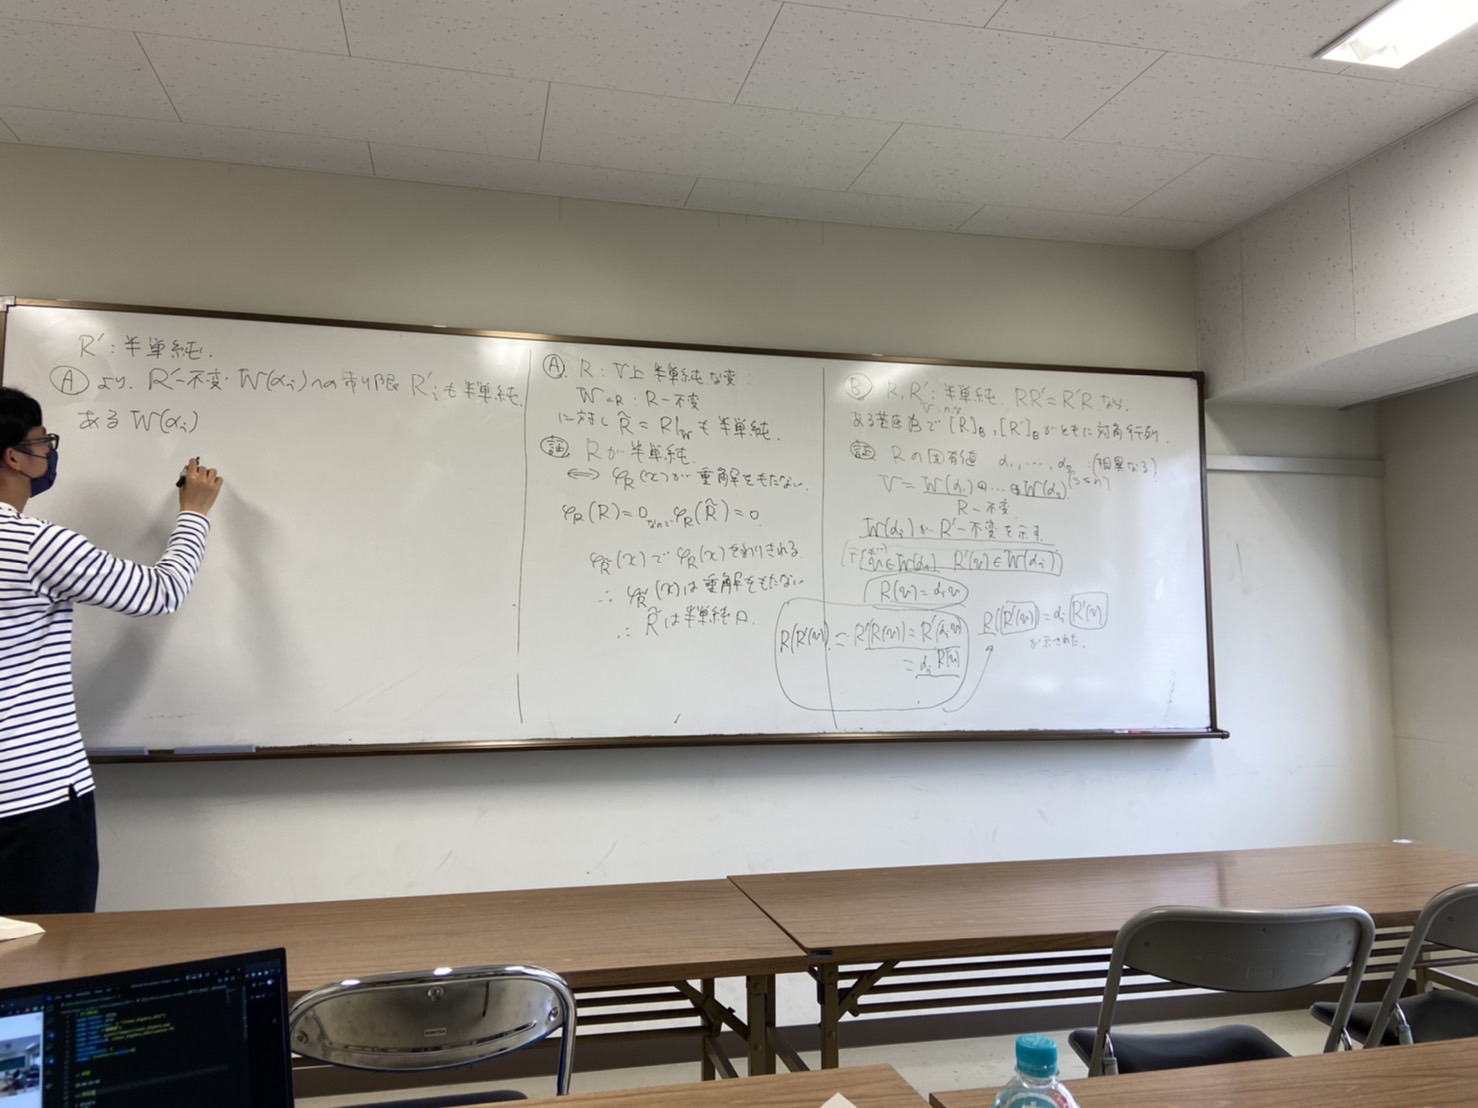 R′：半単純.
Ⓐより. R′-不変 W(αᵢ)への制限 R′ᵢも半単純.
ある W(αᵢ)
Ⓐ. R：V上半単純な変
W⊂R：R-不変
に対し R̃ = R|_W も半単純.
証 Rが半単純.
⟺ φ_R(x)が重解をもたない.
φ_R(R)=0 なので φ_R(R̃)=0
φ_R̃(x)で φ_R(x)をわりきれる
∴ φ_R̃(x)は重解をもたない
∴ R̃は半単純 □.
Ⓑ R, R′：半単純. RR′=R′R なら.
ある基底 で [R]_B, [R′]_B がともに対角行列.
証 Rの固有値 α₁, …, α (相異なる)
V = W(α₁)⊕…⊕W(α)
R-不変
W(αᵢ)が R′-不変を示す.
v∈W(αᵢ) R′(v)∈W(αᵢ)
R(v)=αᵢv
R(R′(v)) = R′(R(v)) = R′(αᵢv)
= αᵢ R′(v)
R(R′(v)) = αᵢ R′(v)
が示された.